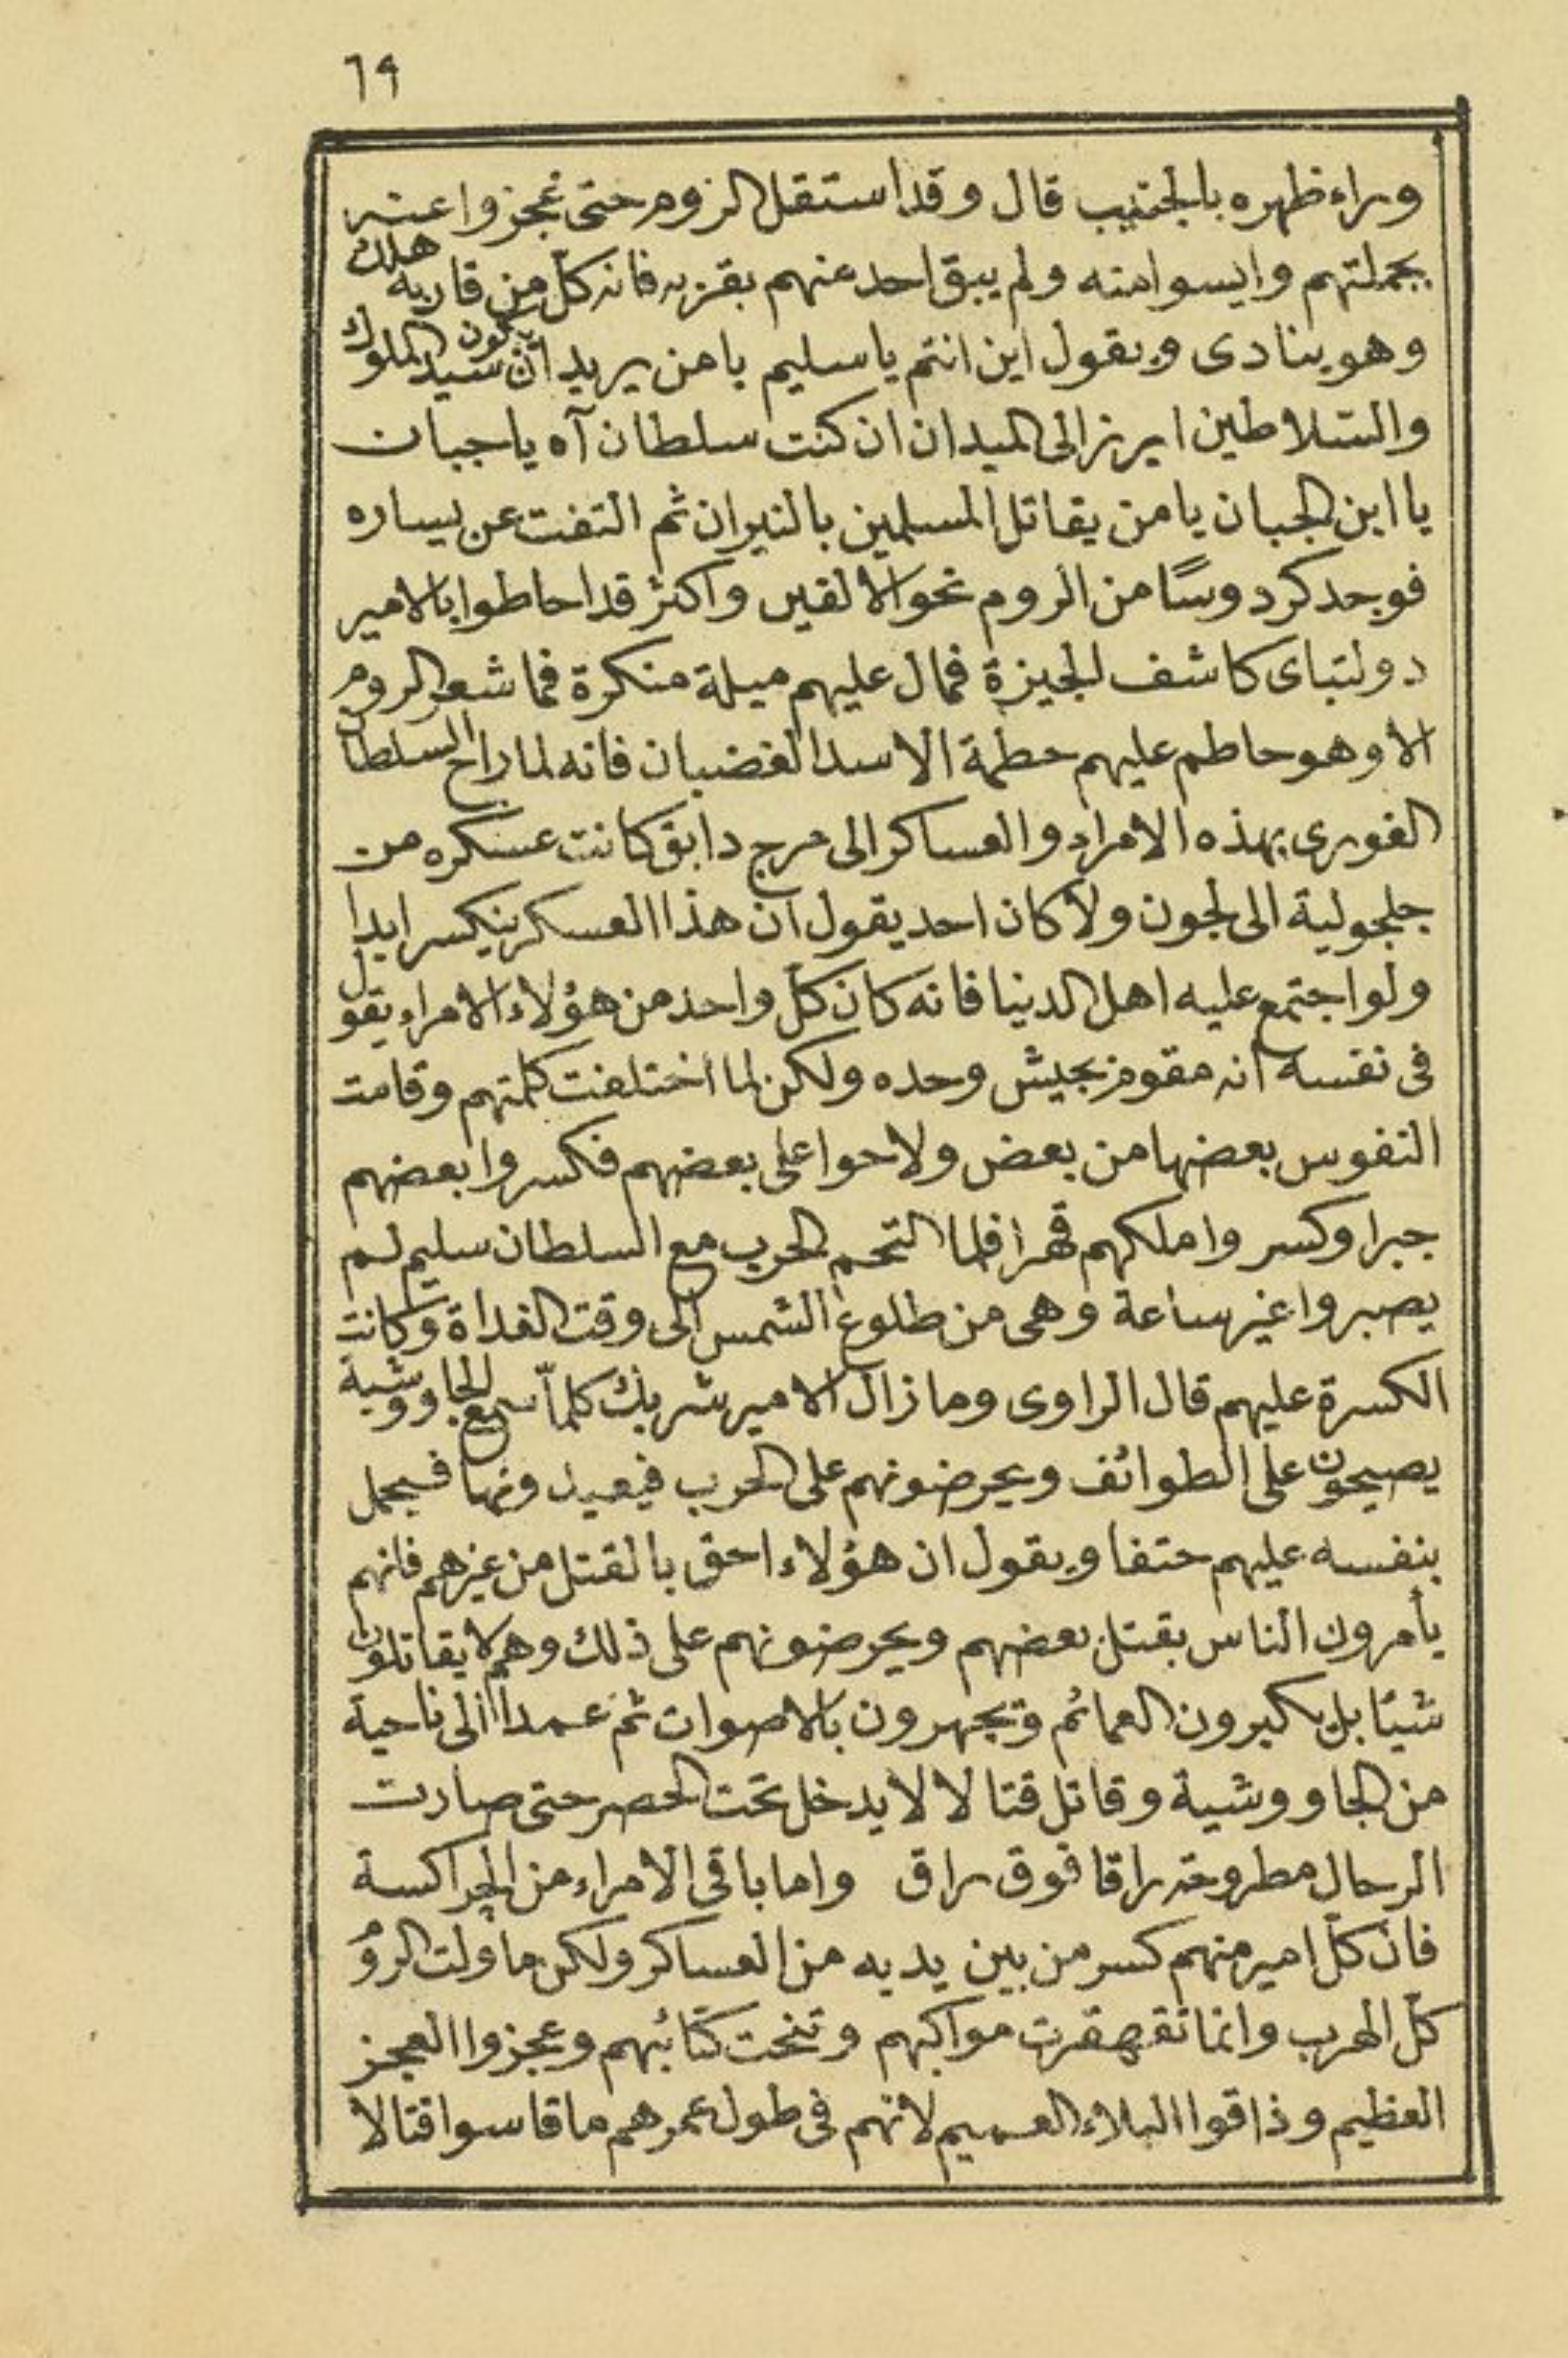 ٦٩
وراء ظهره بالجنيب قال وقد استقل الروم حتى عجزوا عنه
بجملتهم وايسوا منه ولم يبق احد عنهم بقربه فانه كلّ من قاربه هلك
وهو ينادى ويقول اين انتم يا سليم يا من يريد ان يكون سيد الملوك
والسلاطين ابرز الى الميدان ان كنت سلطان آه يا جبان
يا ابن الجبان يا من يقاتل المسلمين بالنيران ثم التفت عن يساره
فوجد كردوسًا من الروم نحو الالفين واكثر قد احاطوا بالامير
دولتباى كاشف الجيزة فمال عليهم ميلة منكرة فما شعر الروم
الا وهو حاطم عليهم حطمة الاسد الغضبان فانه لما راح السلطان
الغورى بهذه الامراء والعساكر الى مرج دابق كانت عسكره من
جلجولية الى لجون ولا كان احد يقول ان هذا العسكر ينكسر ابدا
ولو اجتمع عليه اهل الدنيا فانه كان كلّ واحد من هؤلاء الامراء يقول
فى نفسه انه مقوم بجيش وحده ولكن لما اختلفت كلمتهم وقامت
النفوس بعضها من بعض ولاحوا على بعضهم فكسروا بعضهم
جبرا وكسر واملكهم قهرا فلما التحم الحرب مع السلطان سليم لم
يصبروا غير ساعة وهى من طلوع الشمس الى وقت الغداة وكانت
الكسرة عليهم قال الراوى وما زال الامير شربك كلماّ سمع الجاووشية
يصيحون على الطوائف ويحرضونهم على الحرب فيعيدونها فيحمل
بنفسه عليهم حتفا ويقول ان هؤلاء احق بالقتل من غيرهم فانهم
يأمرون الناس بقتل بعضهم ويحرضونهم على ذلك وهم لا يقاتلون
شيئا بل يكبرون العمائم ويجهرون بالاصوات ثم عمد الى ناحية
من الجاووشية وقاتل قتالا لا يدخل تحت الحصر حتى صارت
الرجال مطروحة راقا فوق راق واما باقى الامراء من الجراكسة
فان كلّ امير منهم كسر من بين يديه من العساكر ولكن ما ولت الروم
كلّ الهرب وانما تقهقرت مواكبهم وتنحت كتائبهم وعجزوا العجز
العظيم وذاقوا البلاء العميم لانهم فى طول عمرهم ما قاسوا قتالا